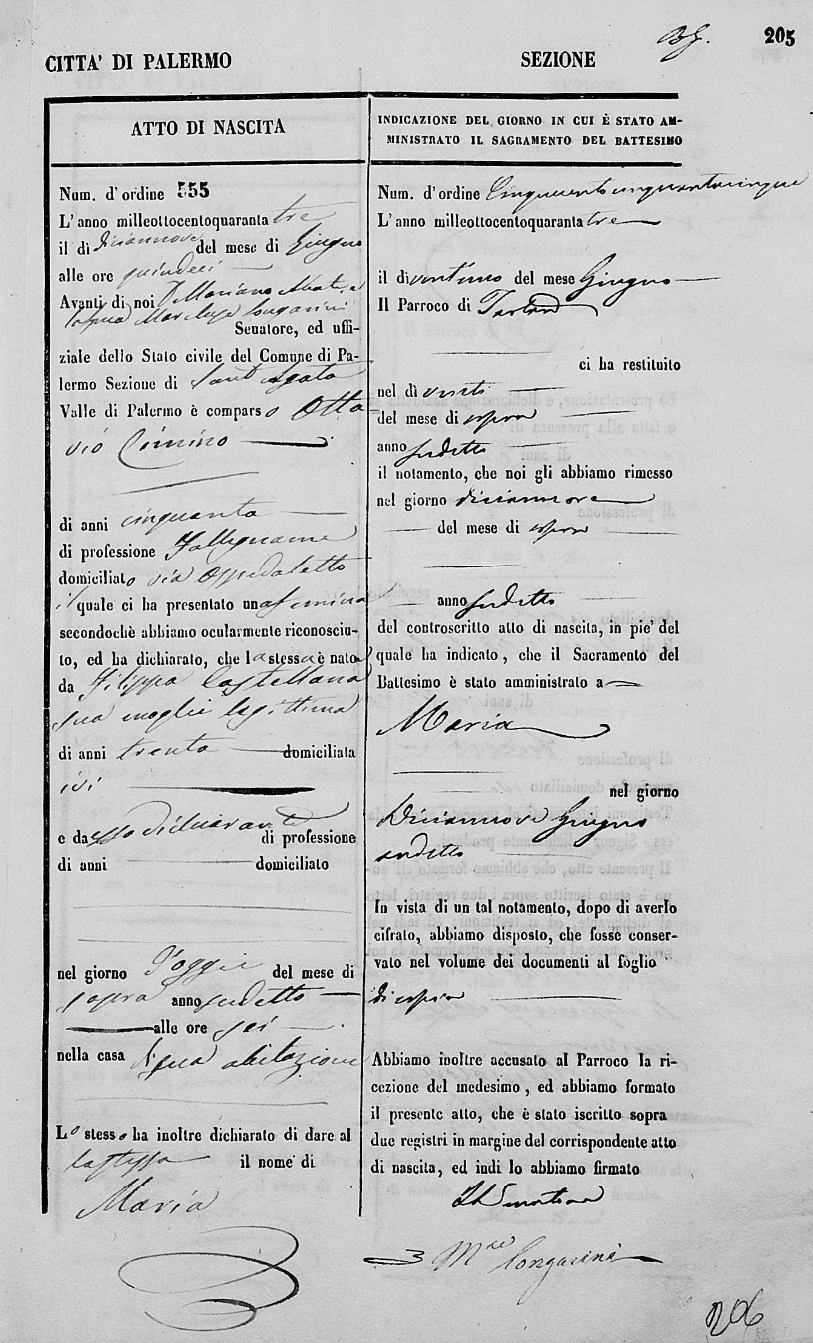 205
CITTA' DI PALERMO
SEZIONE
ATTO DI NASCITA
Num. d'ordine 555
L'anno milleottocentoquaranta tre
il dì diciannove del mese di Giugno
alle ore quindeci
Avanti di noi D. Mariano Abate e
Marchese Longarini
Senatore, ed uffi-
ziale dello Stato civile del Comune di Pa-
lermo Sezione di Sant Agata
Valle di Palermo è comparso Otta-
vio Cimino
di anni cinquanta
di professione Fallegname
domiciliato via Ospedaletto
il quale ci ha presentato una femina
secondochè abbiamo ocularmente riconosciu-
to, ed ha dichiarato, che la stessa è nata
da Filippa Castellana
sua moglie legittima
di anni trenta domiciliata
ivi
e da esso dichiarante di professione
di anni domiciliato
nel giorno d'oggi del mese di
sopra anno sudetto
alle ore sei
nella casa di sua abitazione
Lo stesso ha inoltre dichiarato di dare al
la stessa il nome di
Maria
INDICAZIONE DEL GIORNO IN CUI È STATO AM-
MINISTRATO IL SACRAMENTO DEL BATTESIMO
Num. d'ordine Cinquecentocinquantacinque
L'anno milleottocentoquaranta tre
il dì ventuno del mese Giugno
Il Parroco di
ci ha restituito
nel dì venti
del mese di sopra
anno sudetto
il notamento, che noi gli abbiamo rimesso
nel giorno diciannove
del mese di sopra
anno sudetto
del controscritto atto di nascita, in pie' del
quale ha indicato, che il Sacramento del
Battesimo è stato amministrato a
Maria
nel giorno
Diciannove Giugno
sudetto
In vista di un tal notamento, dopo di averlo
cifrato, abbiamo disposto, che fosse conser-
vato nel volume dei documenti al foglio
di sopra
Abbiamo inoltre accusato al Parroco la ri-
cezione del medesimo, ed abbiamo formato
il presente atto, che è stato iscritto sopra
due registri in margine del corrispondente atto
di nascita, ed indi lo abbiamo firmato
Il Senatore
M.se Longarini
206